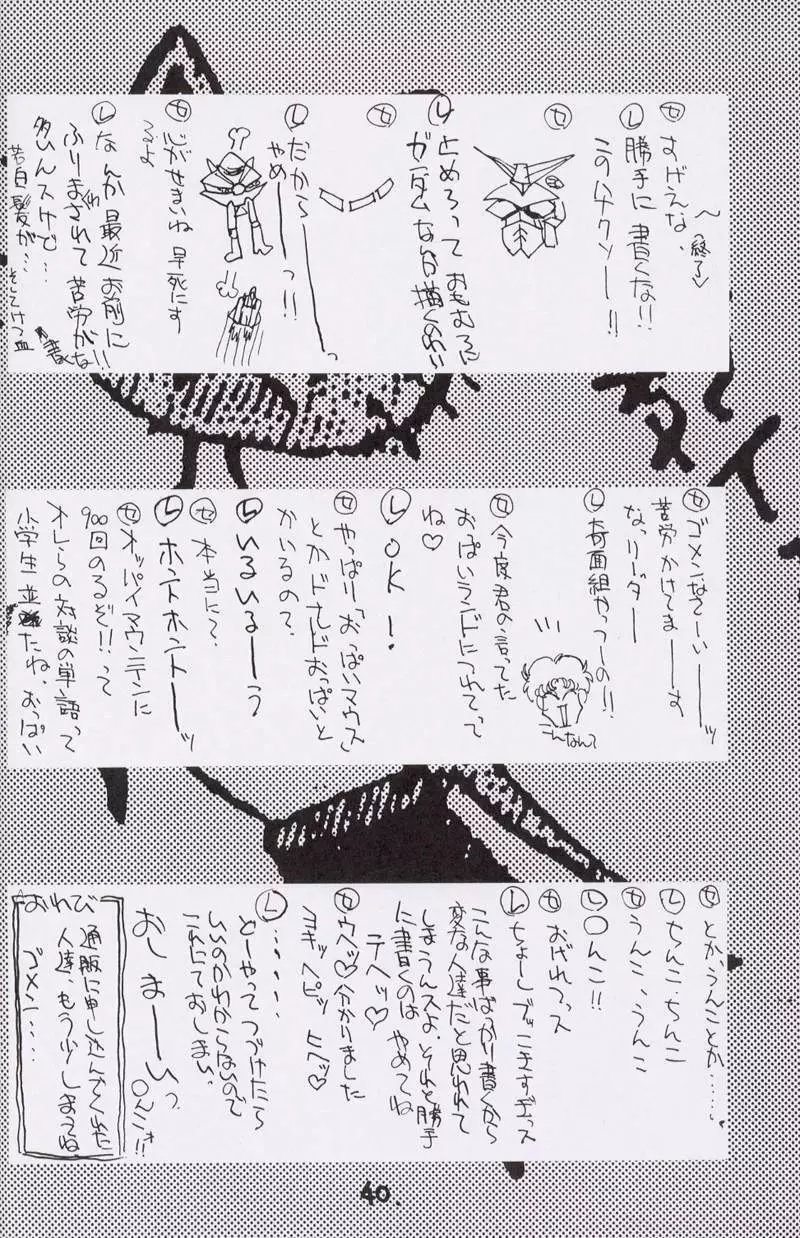 セ すげえな、
〜(終了)
レ 勝手に書くな!!
このハナクソー!!
セ
レ 止めろって おもむろに
ガンダムなんか描くのは
セ
レ だから————っ
やめ——っ!!
セ 心がせまいね 早死にす
るよ
レ なんか最近お前に
ふりまわされて苦労がな!!
多いんスけど…
若白髪が…
セ ゴメンなさーいーーッ
苦労かけてまーーす
なっリーダー
レ 奇面組かっつーの!!
こんなんて
セ 今度君の言ってた
おっぱいランドにつれてって
ね♡
レ OK!
セ やっぱり「おっぱいマウス」
とかドナルドおっぱいと
かいるの?
レ いるいるーーう
セ 本当に?
レ ホントホントーーッ
セ オッパイマウンテンに
900回のるぞ!!って
オレらの対談の単語って
小学生並みだね、おっぱい
セ とかうんことか……
レ ちんこ、ちんこ
セ うんこ、うんこ
レ 〇んこ!!
セ おげれつっス
レ ちょーしブッこきすぎっス
こんな事ばっかり書くから
変な人達だと思われて
しまうんスよ、それと勝手
に書くのはやめてね
テヘッ♡
セ ウヘッ♡分かりました
ヨキッヘピッ ヒヘッ♡
レ ……
どーやってつづけたら
いいのかわからないので
これにておしまい。
おしまーいっ
〇んこ!!
おわび
通販に申し込んでくれた
人達、もう少しまってね
ゴメン…
40.